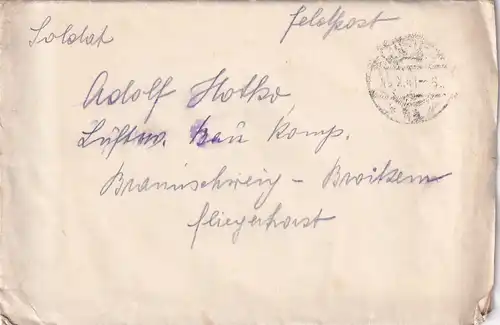 Soldat
Feldpost
Adolf Hotko
Luftw. Bau Komp.
Braunschweig - Broitzem
Fliegerhorst